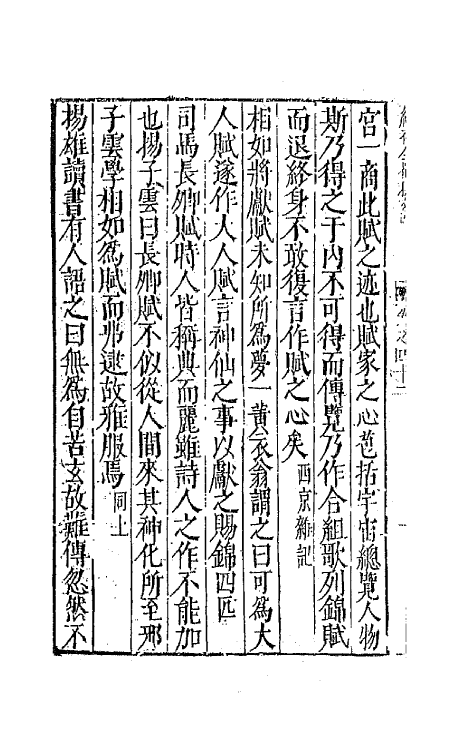 宮一商此賦之迹也賦家之心苞括宇宙總覽人物
斯乃得之于内不可得而傳覽乃作合組歌列錦賦
而退終身不敢復言作賦之心矣西京雜記
相如將獻賦未知所爲夢一黄衣翁謂之曰可爲大
人賦遂作大人賦言神仙之事以獻之賜錦四匹
司馬長卿賦時人皆稱典而麗雖詩人之作不能加
也揚子雲曰長卿賦不似從人間來其神化所至邪
子雲學相如爲賦而弗逮故雅服焉同上
揚雄讀書有人語之曰無爲自苦玄故難傳忽然不